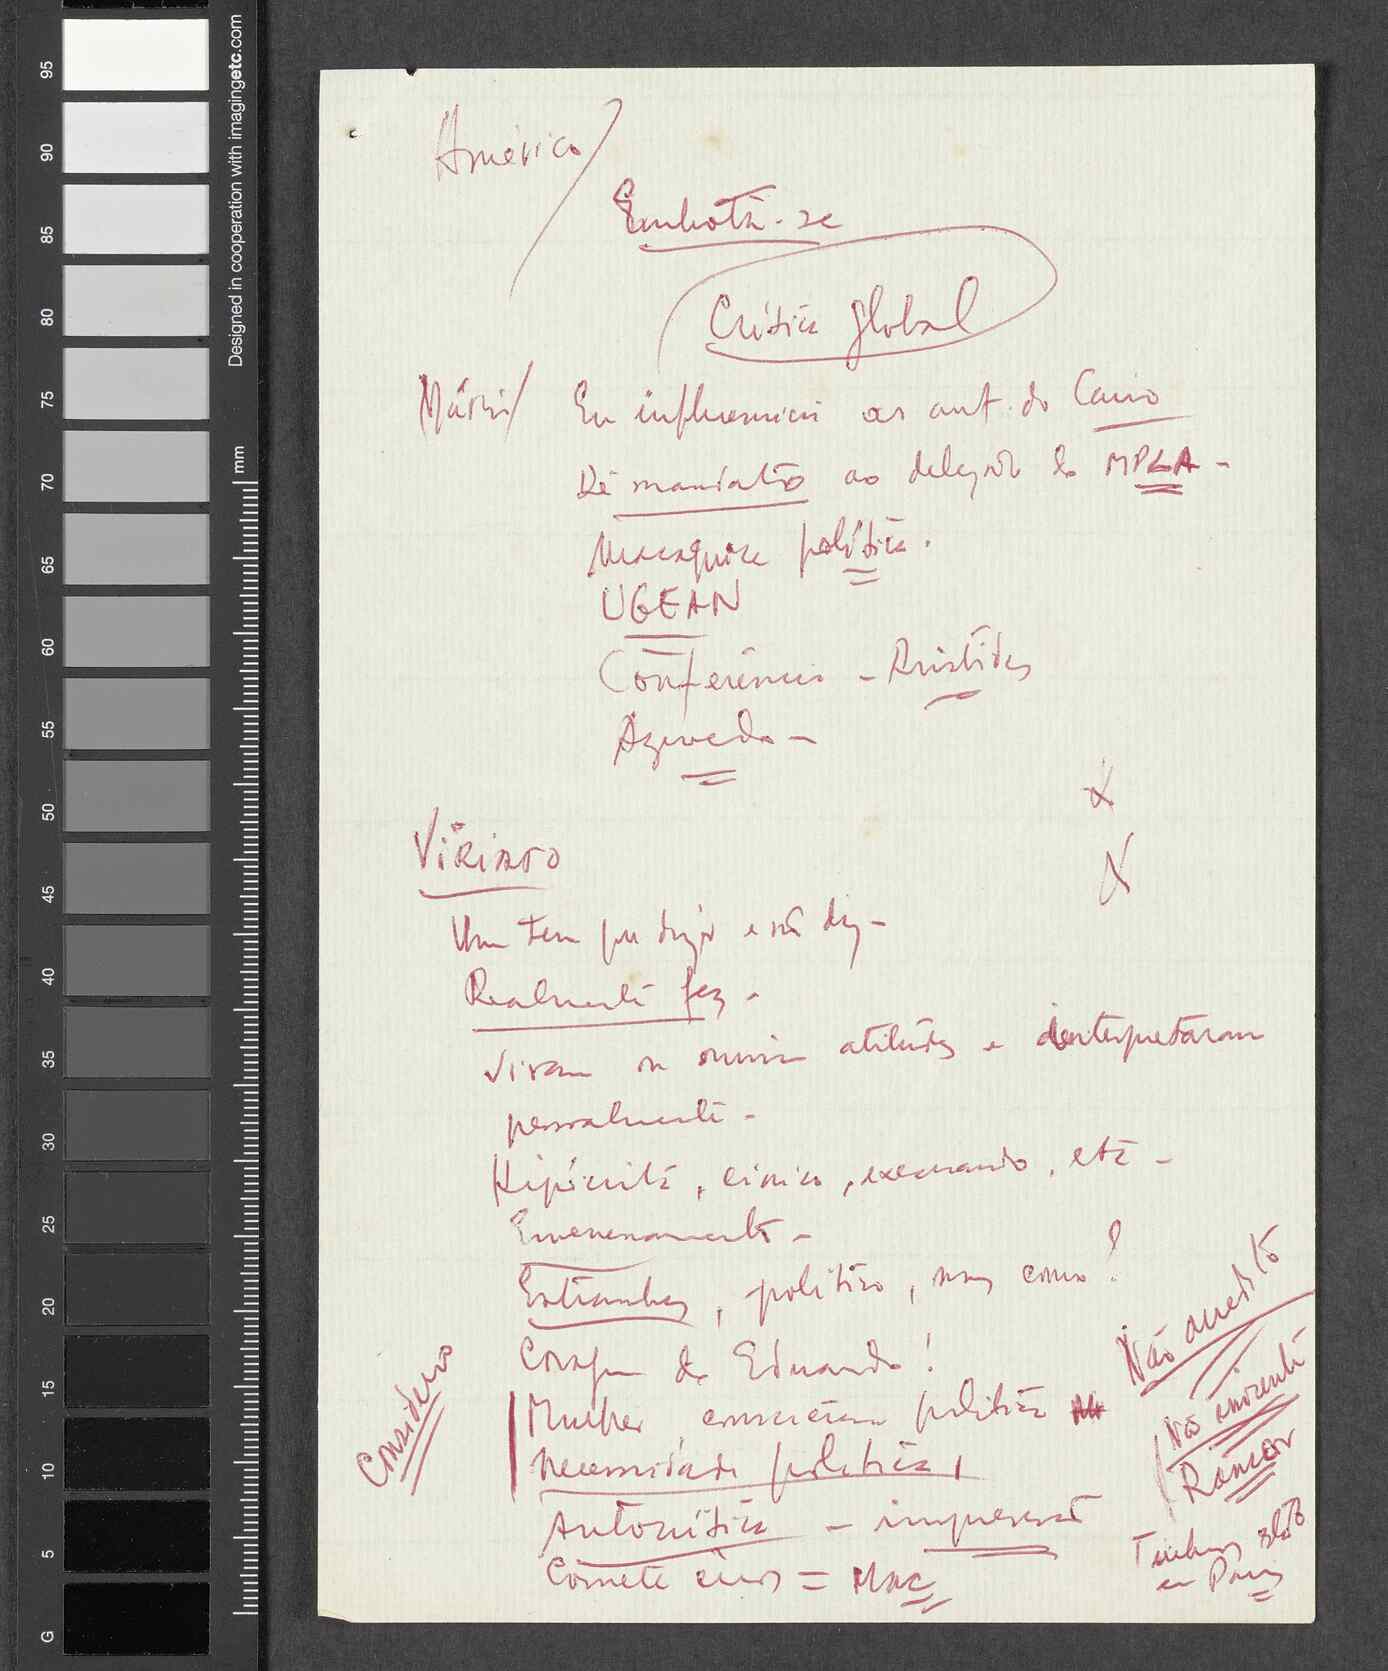 95
90
85
80
75
70
65
60
55
50
45
40
35
30
25
20
15
10
5
G
Designed in cooperation with imagingetc.com
mm
América/
Embotá-se
Crítica global
Mário/ Eu influenciei as aut. do Cairo
Dê mandato ao delegado do MPLA -
Macaquice política.
UGEAN
Conferência - Aristides
Azevedo -
Viriato
Um tem que dizer e não diz -
Realmente fez -
Viram em mim atitudes e interpretaram
pessoalmente -
Hipócrita, cínico, execrando, etc -
Envenenamento -
Estranhas, político, mas como?
Coragem do Eduardo!
Mulher, consciência política
Necessidade política,
Considero
Autocrítica - imprensa
Comete erros = Mac
Não acredito
Não inocente
Rancor
em Paris